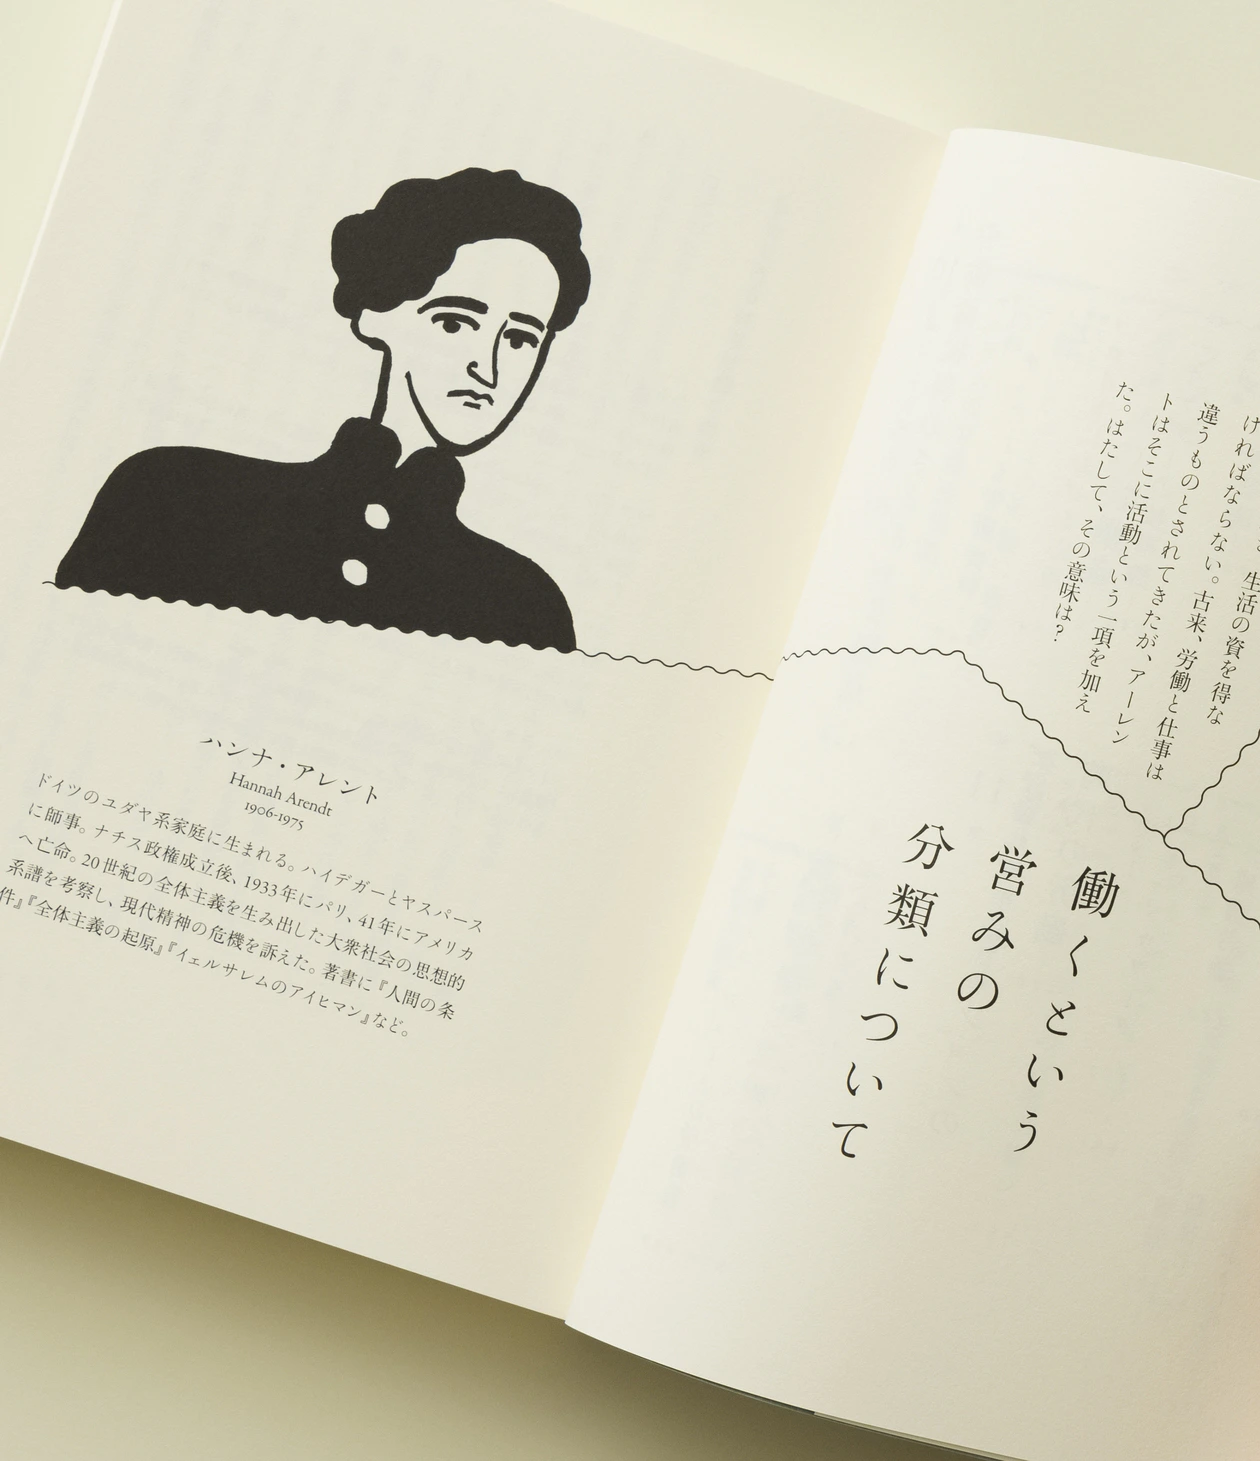 ければならない。古来、労働と仕事は
違うものとされてきたが、アーレン
トはそこに活動という一項を加え
た。はたして、その意味は？
働くという
営みの
分類について
ハンナ・アレント
Hannah Arendt
1906-1975
ドイツのユダヤ系家庭に生まれる。ハイデガーとヤスパース
に師事。ナチス政権成立後、1933年にパリ、41年にアメリカ
へ亡命。20世紀の全体主義を生み出した大衆社会の思想的
系譜を考察し、現代精神の危機を訴えた。著書に『人間の条
件』『全体主義の起原』『イェルサレムのアイヒマン』など。